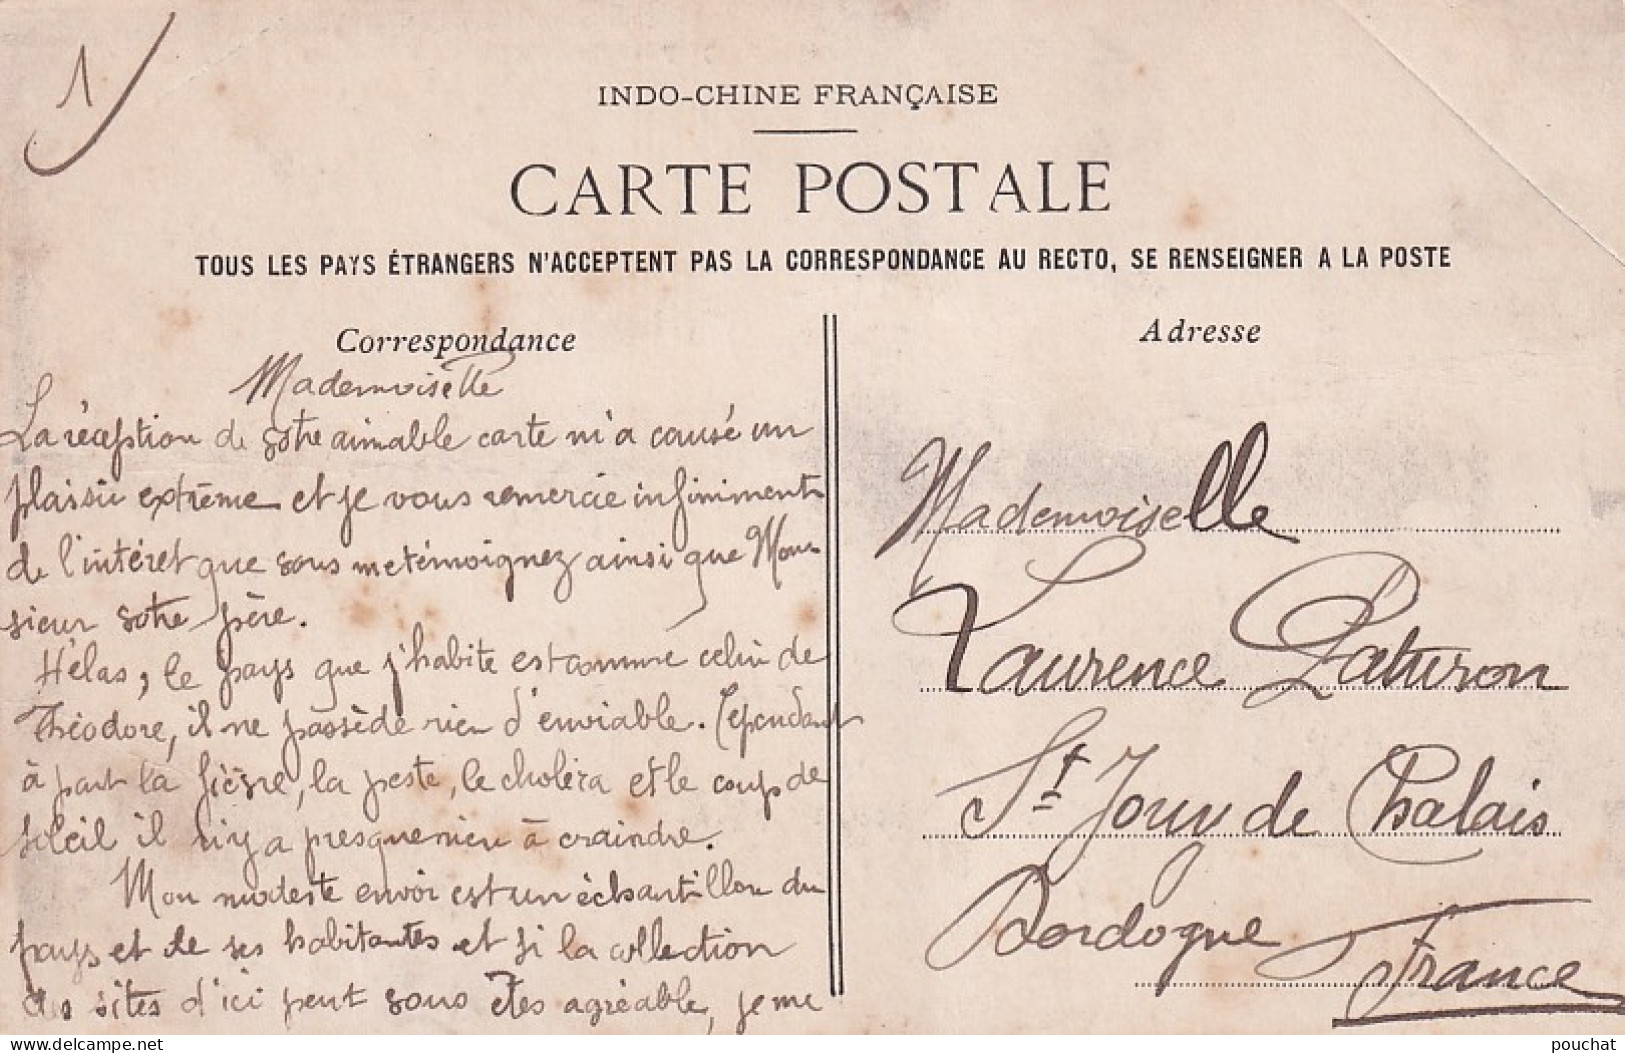 1
INDO-CHINE FRANÇAISE
CARTE POSTALE
TOUS LES PAYS ÉTRANGERS N'ACCEPTENT PAS LA CORRESPONDANCE AU RECTO, SE RENSEIGNER A LA POSTE
Correspondance
Mademoiselle
La réception de votre aimable carte m'a causé un
plaisir extrême et je vous remercie infiniment
de l'intéret que vous me témoignez ainsi que Mon-
sieur votre père.
Hélas, le pays que j'habite est comme celui de
Théodore, il ne possède rien d'enviable. Cependant
à part la fièvre, la peste, le choléra et le coup de
soleil il n'y a presque rien à craindre.
Mon modeste envoi est un échantillon du
pays et de ses habitantes et si la collection
des sites d'ici peut vous êtes agréable, je me
Adresse
Mademoiselle
Laurence Paturon
St Jory de Chalais
Dordogne
France
pouchat